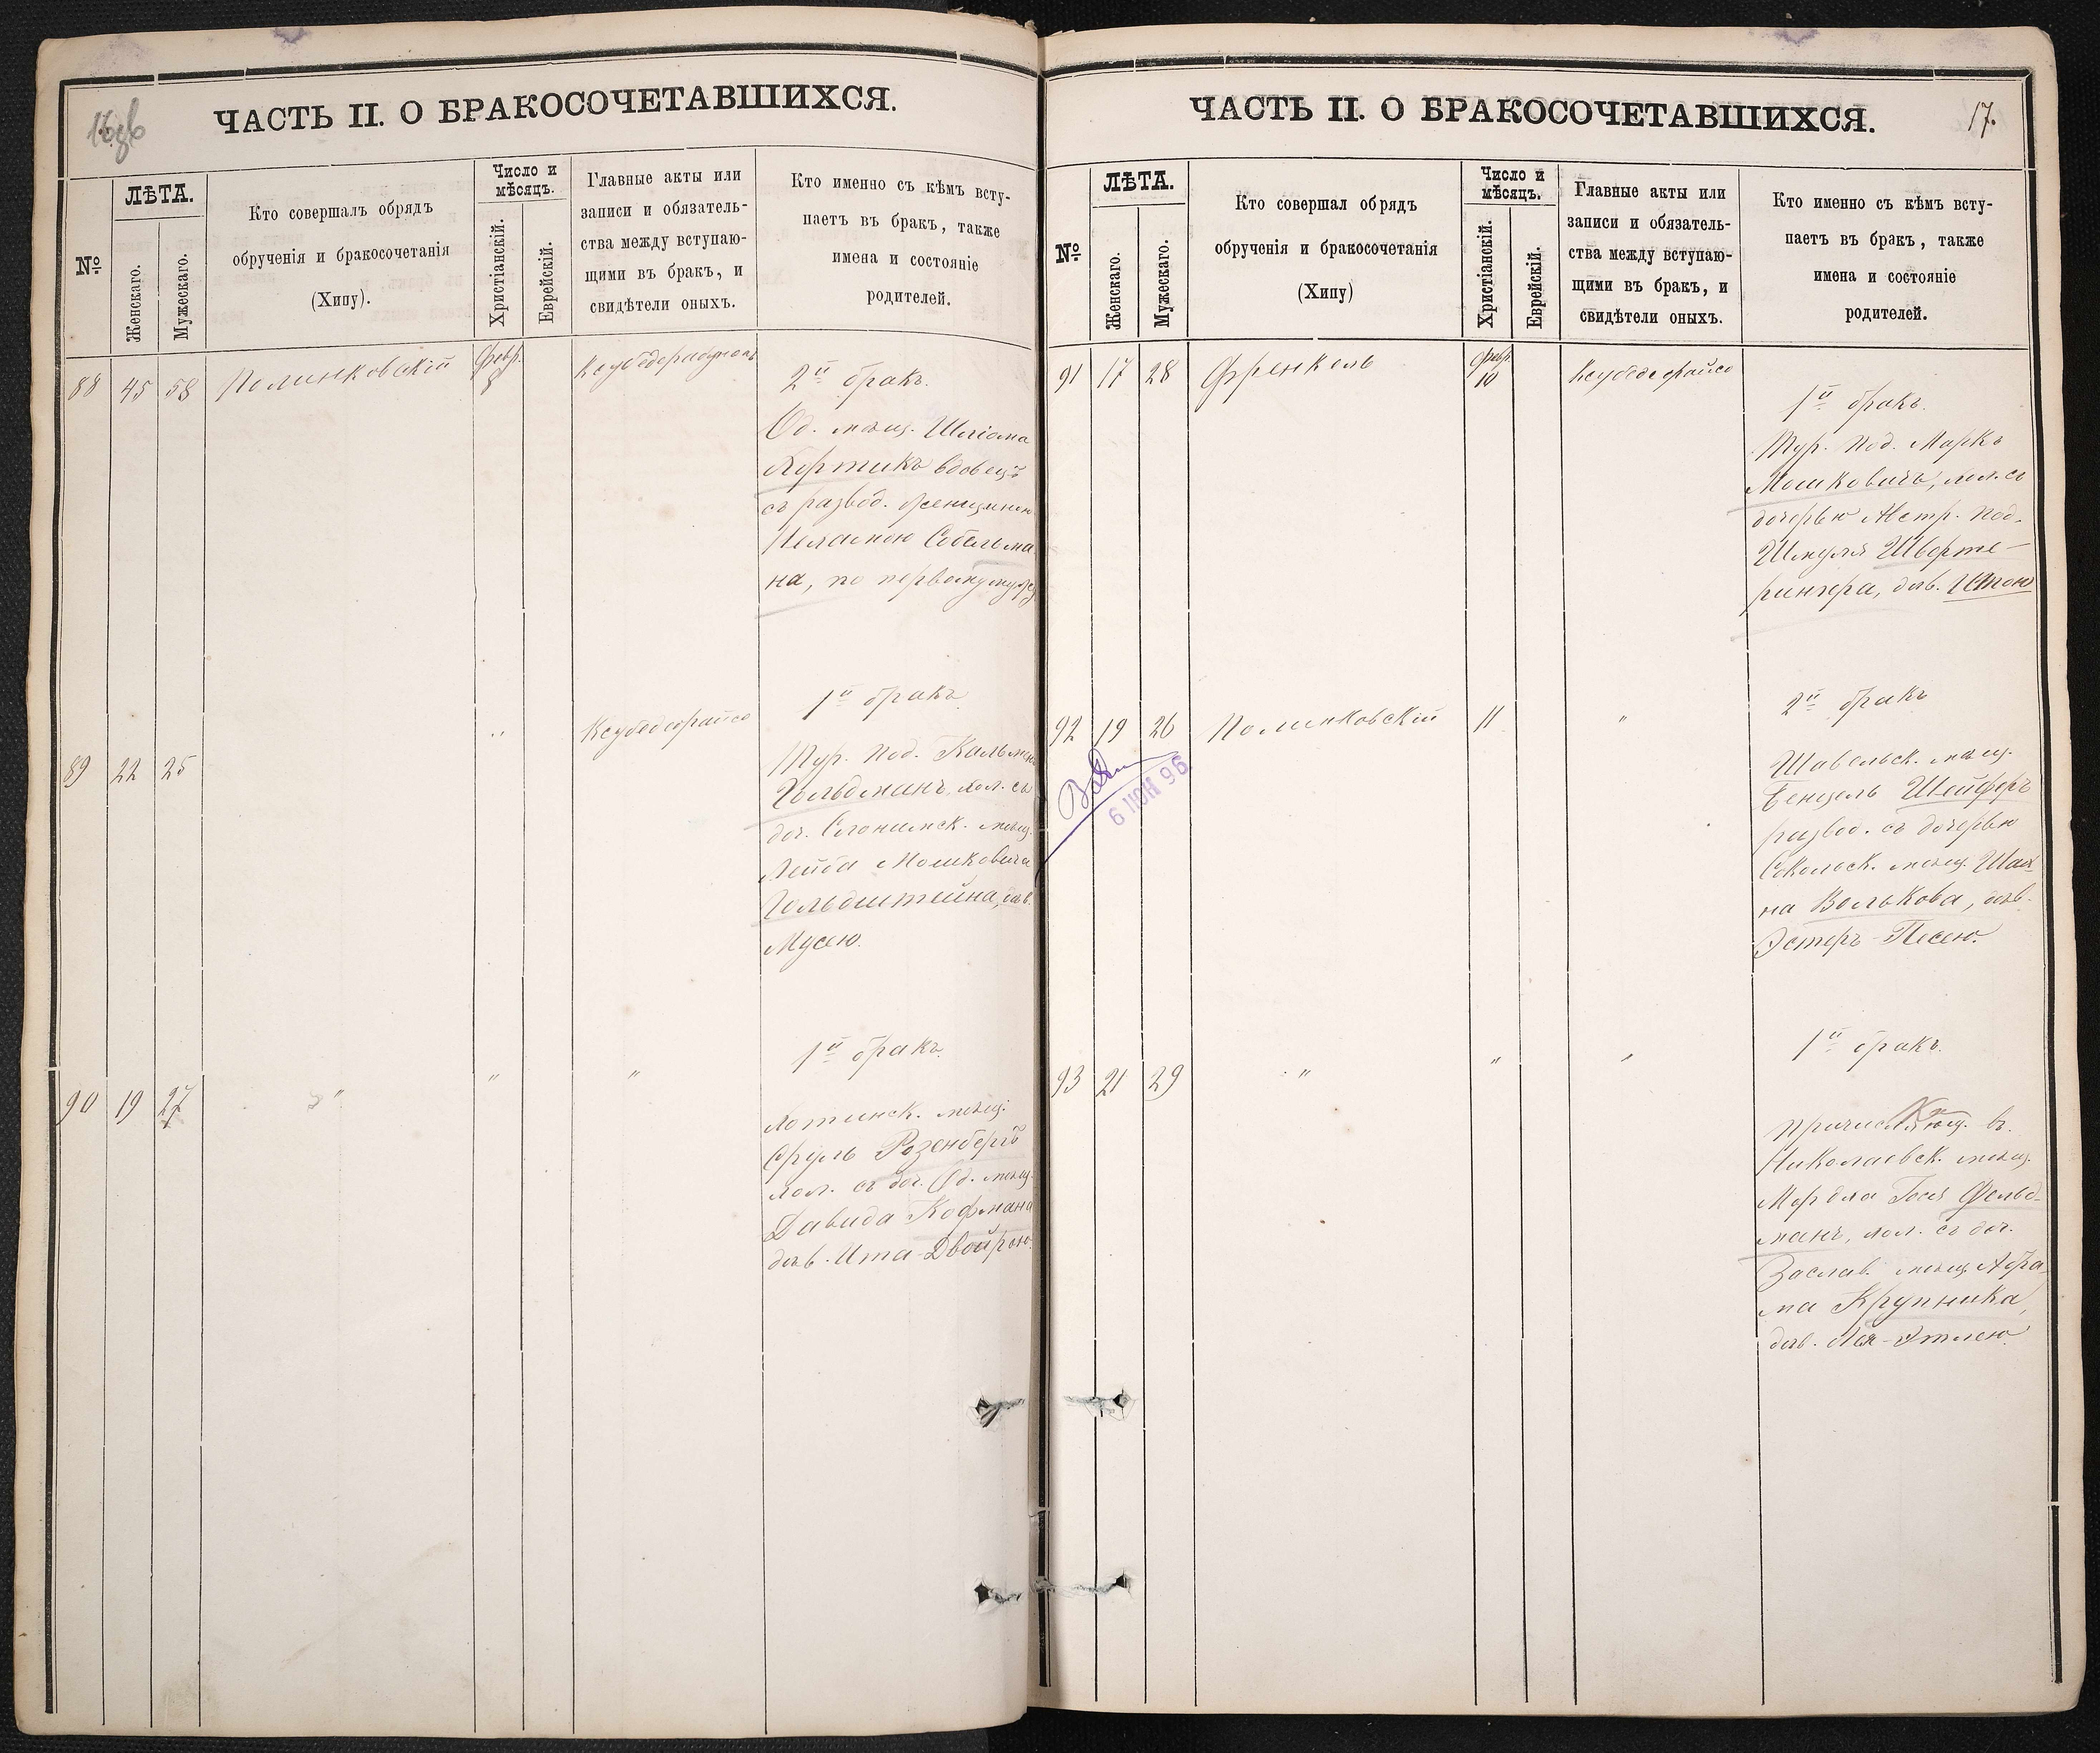 16 об
ЧАСТЬ II. О БРАКОСОЧЕТАВШИХСЯ.
№
ЛѢТА.
Женскаго.
Мужескаго.
Кто совершалъ обрядъ
обрученія и бракосочетанія
(Хипу).
Число и
мѣсяцъ.
Христіанскій.
Еврейскій.
Главные акты или
записи и обязатель-
ства между вступаю-
щими въ бракъ, и
свидѣтели оныхъ.
Кто именно съ кѣмъ всту-
паетъ въ бракъ, также
имена и состояніе
родителей.
88 45 58 Полинковскій Февр. 8
2й бракъ.
Од. мѣщ. Шліома
Кортикъ вдовецъ
съ развод. женщиною
Собельма-
на, по первому мужу
89 22 25 " Ксубедерайсо
1й бракъ.
Тур. Под. Кальмен
Гольдманъ, хол. съ
доч. Слонимск. мѣщ.
Лейба Мошковича
Гольдштейна, дѣв.
Мусею.
90 19 27 " " "
1й бракъ.
мѣщ.
Сруль Розенбергъ
хол. съ доч. Од. мѣщ.
Давида Кофмана
дѣв. Ита-Двойрою.
ЧАСТЬ II. О БРАКОСОЧЕТАВШИХСЯ.
17.
№
ЛѢТА.
Женскаго.
Мужескаго.
Кто совершал обрядъ
обрученія и бракосочетанія
(Хипу)
Число и
мѣсяцъ.
Христіанскій.
Еврейскій.
Главные акты или
записи и обязатель-
ства между вступаю-
щими въ бракъ, и
свидѣтели оныхъ.
Кто именно съ кѣмъ всту-
паетъ въ бракъ, также
имена и состояніе
родителей.
91 17 28 Френкель Февр. 10 Ксубедерайсо
1й бракъ.
Тур. Под. Маркъ
Мошковичъ, хол. съ
дочерью Австр. Под.
Шмуля Шварте-
рингера, дѣв.
92 19 26 Полинковскій 11 "
6 ІЮН 96
2й бракъ
Шавельск. мѣщ.
Бенцель Шейферъ
развод. съ дочерью
Сокольск. мѣщ. Шах-
на Волькова, дѣв.
Эстеръ-Песею.
93 21 29 " " "
1й бракъ.
въ
Николаевск. мѣщ.
Мордко Госъ Фельд-
манъ, хол. съ доч.
Заслав. мѣщ. Абра-
ма Крупника,
дѣв. Лея-Этлею.